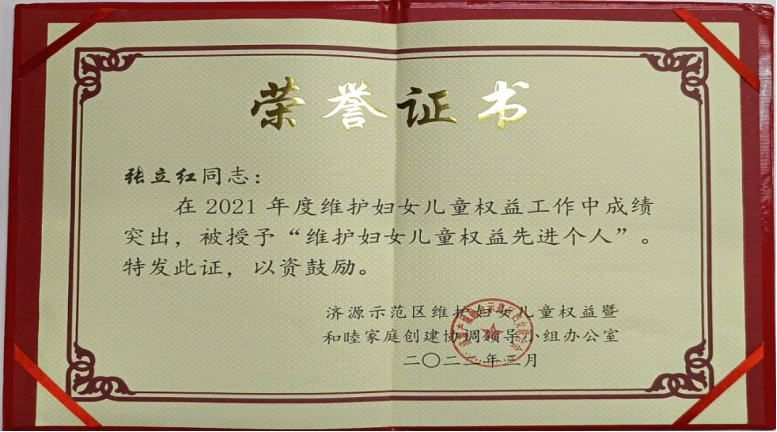 荣誉证书
张立红同志：
在 2021 年度维护妇女儿童权益工作中成绩
突出，被授予“维护妇女儿童权益先进个人”。
特发此证，以资鼓励。
济源示范区维护妇女儿童权益暨
和睦家庭创建协调领导小组办公室
二〇二二年三月